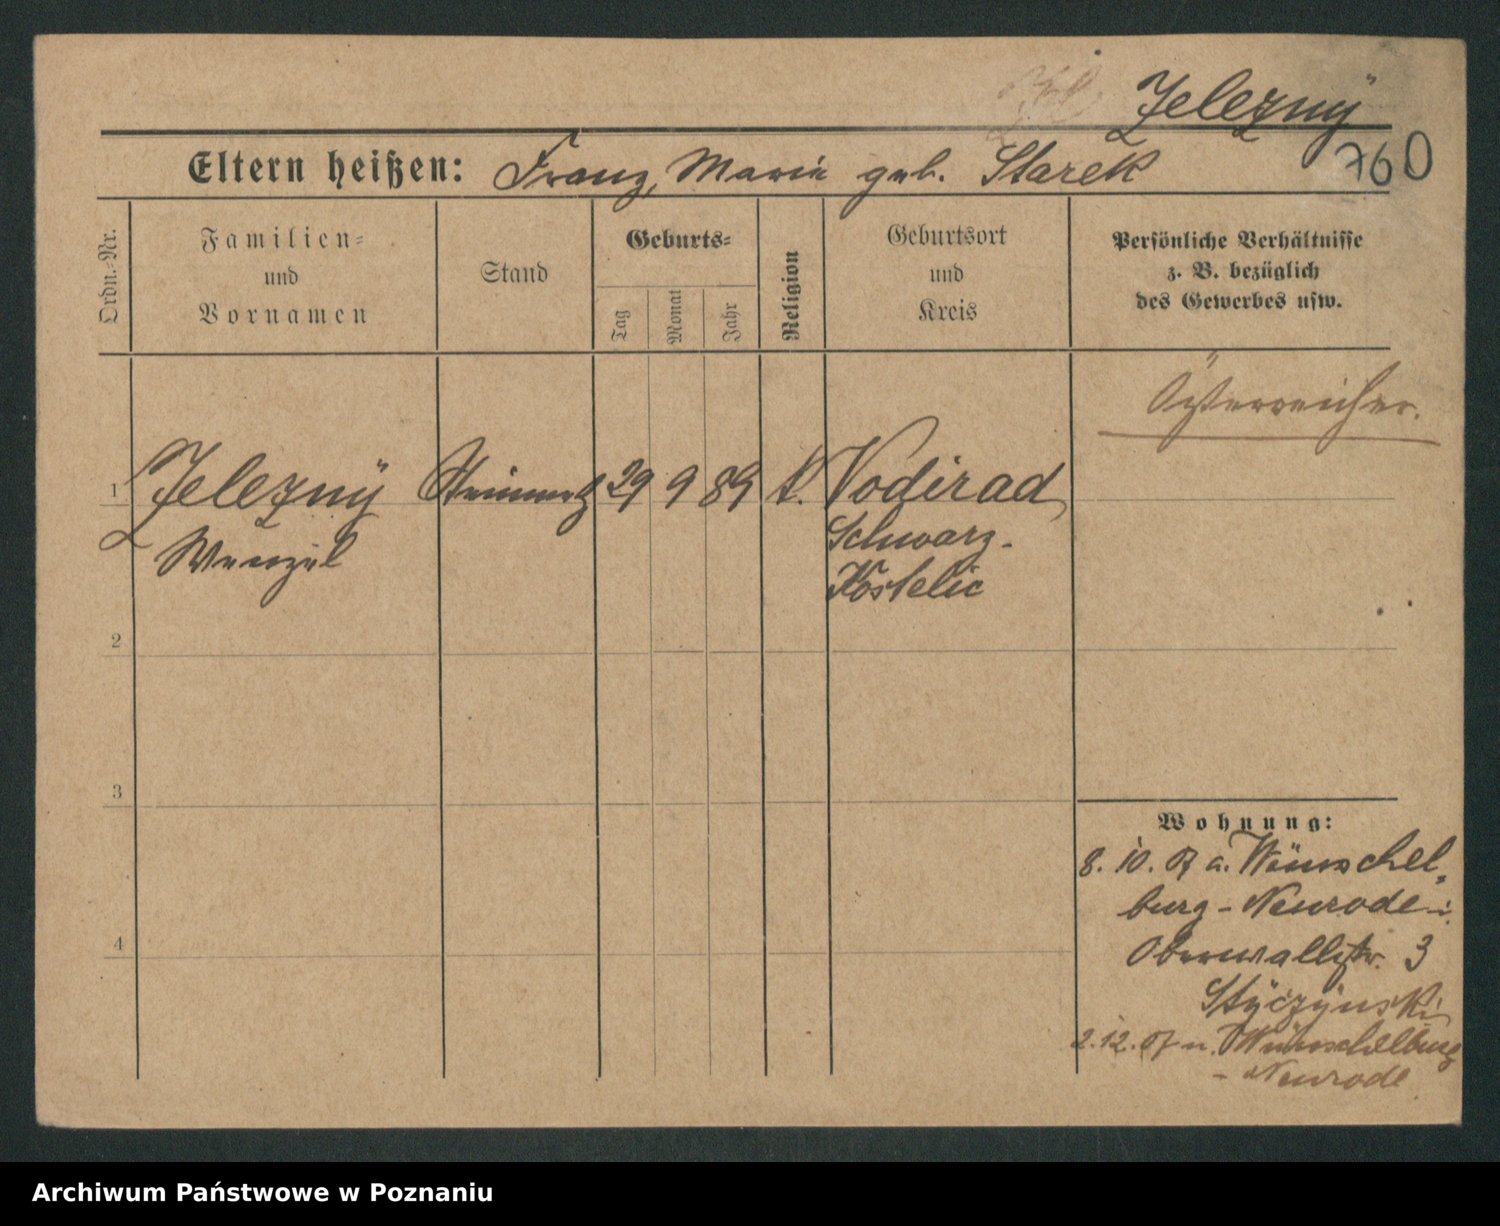 Zelezný
Eltern heißen: Franz, Marie geb. Starek
760
Ordn.-Nr.
Familien-
und
Vornamen
Stand
Geburts-
Tag
Monat
Jahr
Religion
Geburtsort
und
Kreis
Persönliche Verhältnisse
z. B. bezüglich
des Gewerbes usw.
Österreicher.
1 Zelezný Steinmetz 29 9 89 k. Vodirad,
Wenzel Schwarz-
Kostelic
2
3
4
Wohnung:
8. 10. 07 a. Wünschel-
burg - Neurode
Oberwallstr. 3
Styczynski
2. 12. 07 n. Wünschelburg
- Neurode
Archiwum Państwowe w Poznaniu